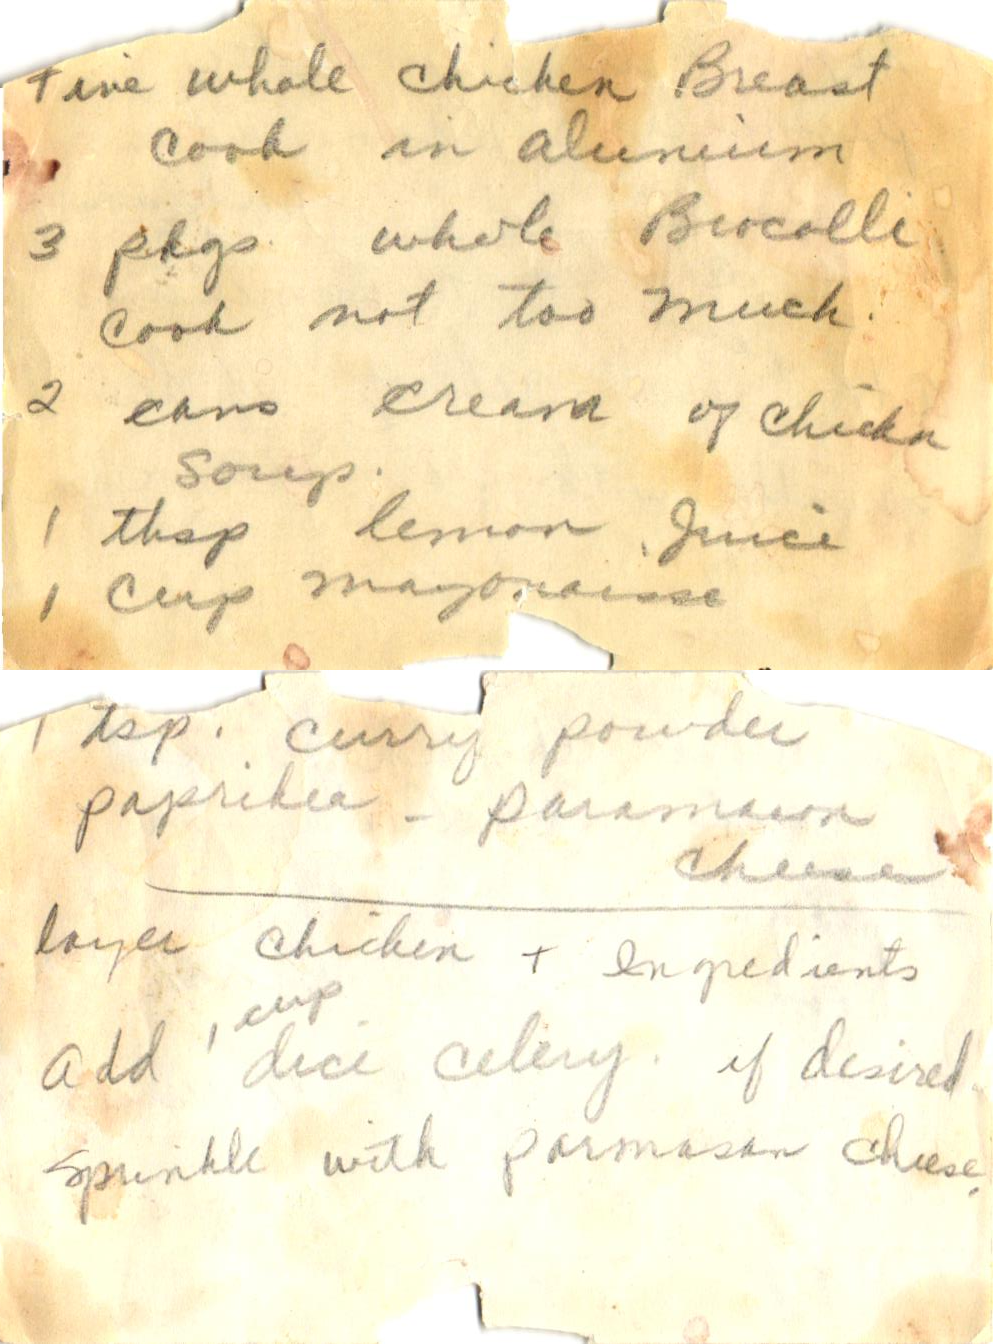 Five whole chicken Breast
cook in alunium
3 pkgs whole Brocolli
cook not too much.
2 cans cream of chickn
Soup.
1 tbsp lemon Juice
1 cup mayonaisse
1 tsp. curry powder
paprika - paramason
cheese
layer chicken + Ingredients
1 cup
add dice celery. if desired
Sprinkle with parmasan cheese.